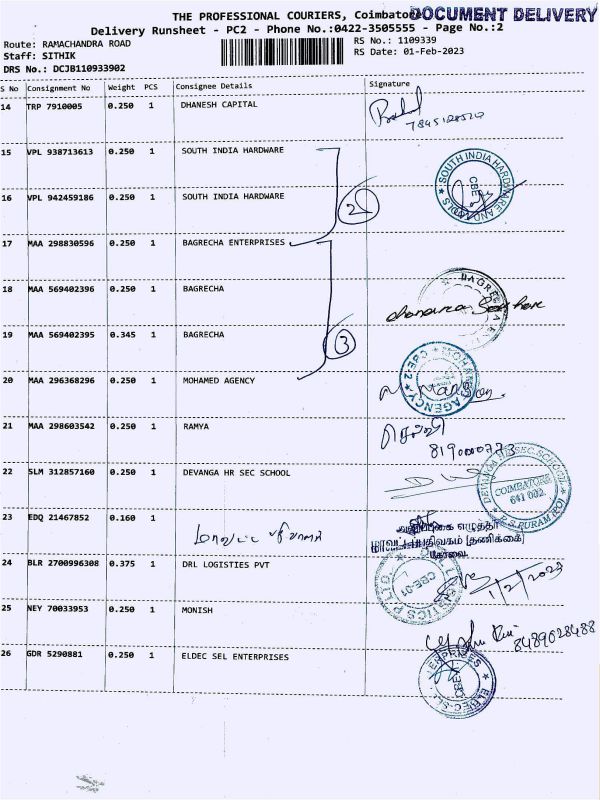 THE PROFESSIONAL COURIERS, Coimbato
DOCUMENT DELIVERY
Delivery Runsheet - PC2 - Phone No.:0422-3505555 - Page No.:2
Route: RAMACHANDRA ROAD
RS No.: 1109339
Staff: SITHIK
RS Date: 01-Feb-2023
DRS No.: DCJB110933902
S No Consignment No Weight PCS Consignee Details Signature
14 TRP 7910005 0.250 1 DHANESH CAPITAL
15 VPL 938713613 0.250 1 SOUTH INDIA HARDWARE
16 VPL 942459186 0.250 1 SOUTH INDIA HARDWARE
2
SOUTH INDIA HARDWARE AND
CBE
17 MAA 298830596 0.250 1 BAGRECHA ENTERPRISES
18 MAA 569402396 0.250 1 BAGRECHA
19 MAA 569402395 0.345 1 BAGRECHA
3
20 MAA 296368296 0.250 1 MOHAMED AGENCY
AGENCY
21 MAA 298603542 0.250 1 RAMYA
22 SLM 312857160 0.250 1 DEVANGA HR SEC SCHOOL
DEVANGA HR.SEC.SCHOOL
COIMBATORE
641 002.
R.S.PURAM (PO)
23 EDQ 21467852 0.160 1
எழுத்தர்
(தணிக்கை)
கோவை.
24 BLR 2700996308 0.375 1 DRL LOGISTIES PVT
CBE-01
1/2/2023
25 NEY 70033953 0.250 1 MONISH
8489028488
26 GDR 5290881 0.250 1 ELDEC SEL ENTERPRISES